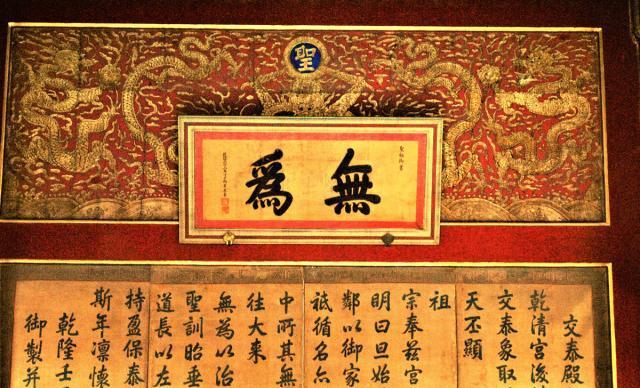 聖
無爲
交泰殿
乾清宮後
交泰象取
天丕顯
祖
宗奉茲宮
明曰旦始
鄰以御家
祗循名
中所其無
往大來
無為以治
聖訓昭垂
道長以左
持盈保泰
斯年凜懷
乾隆壬
御製并